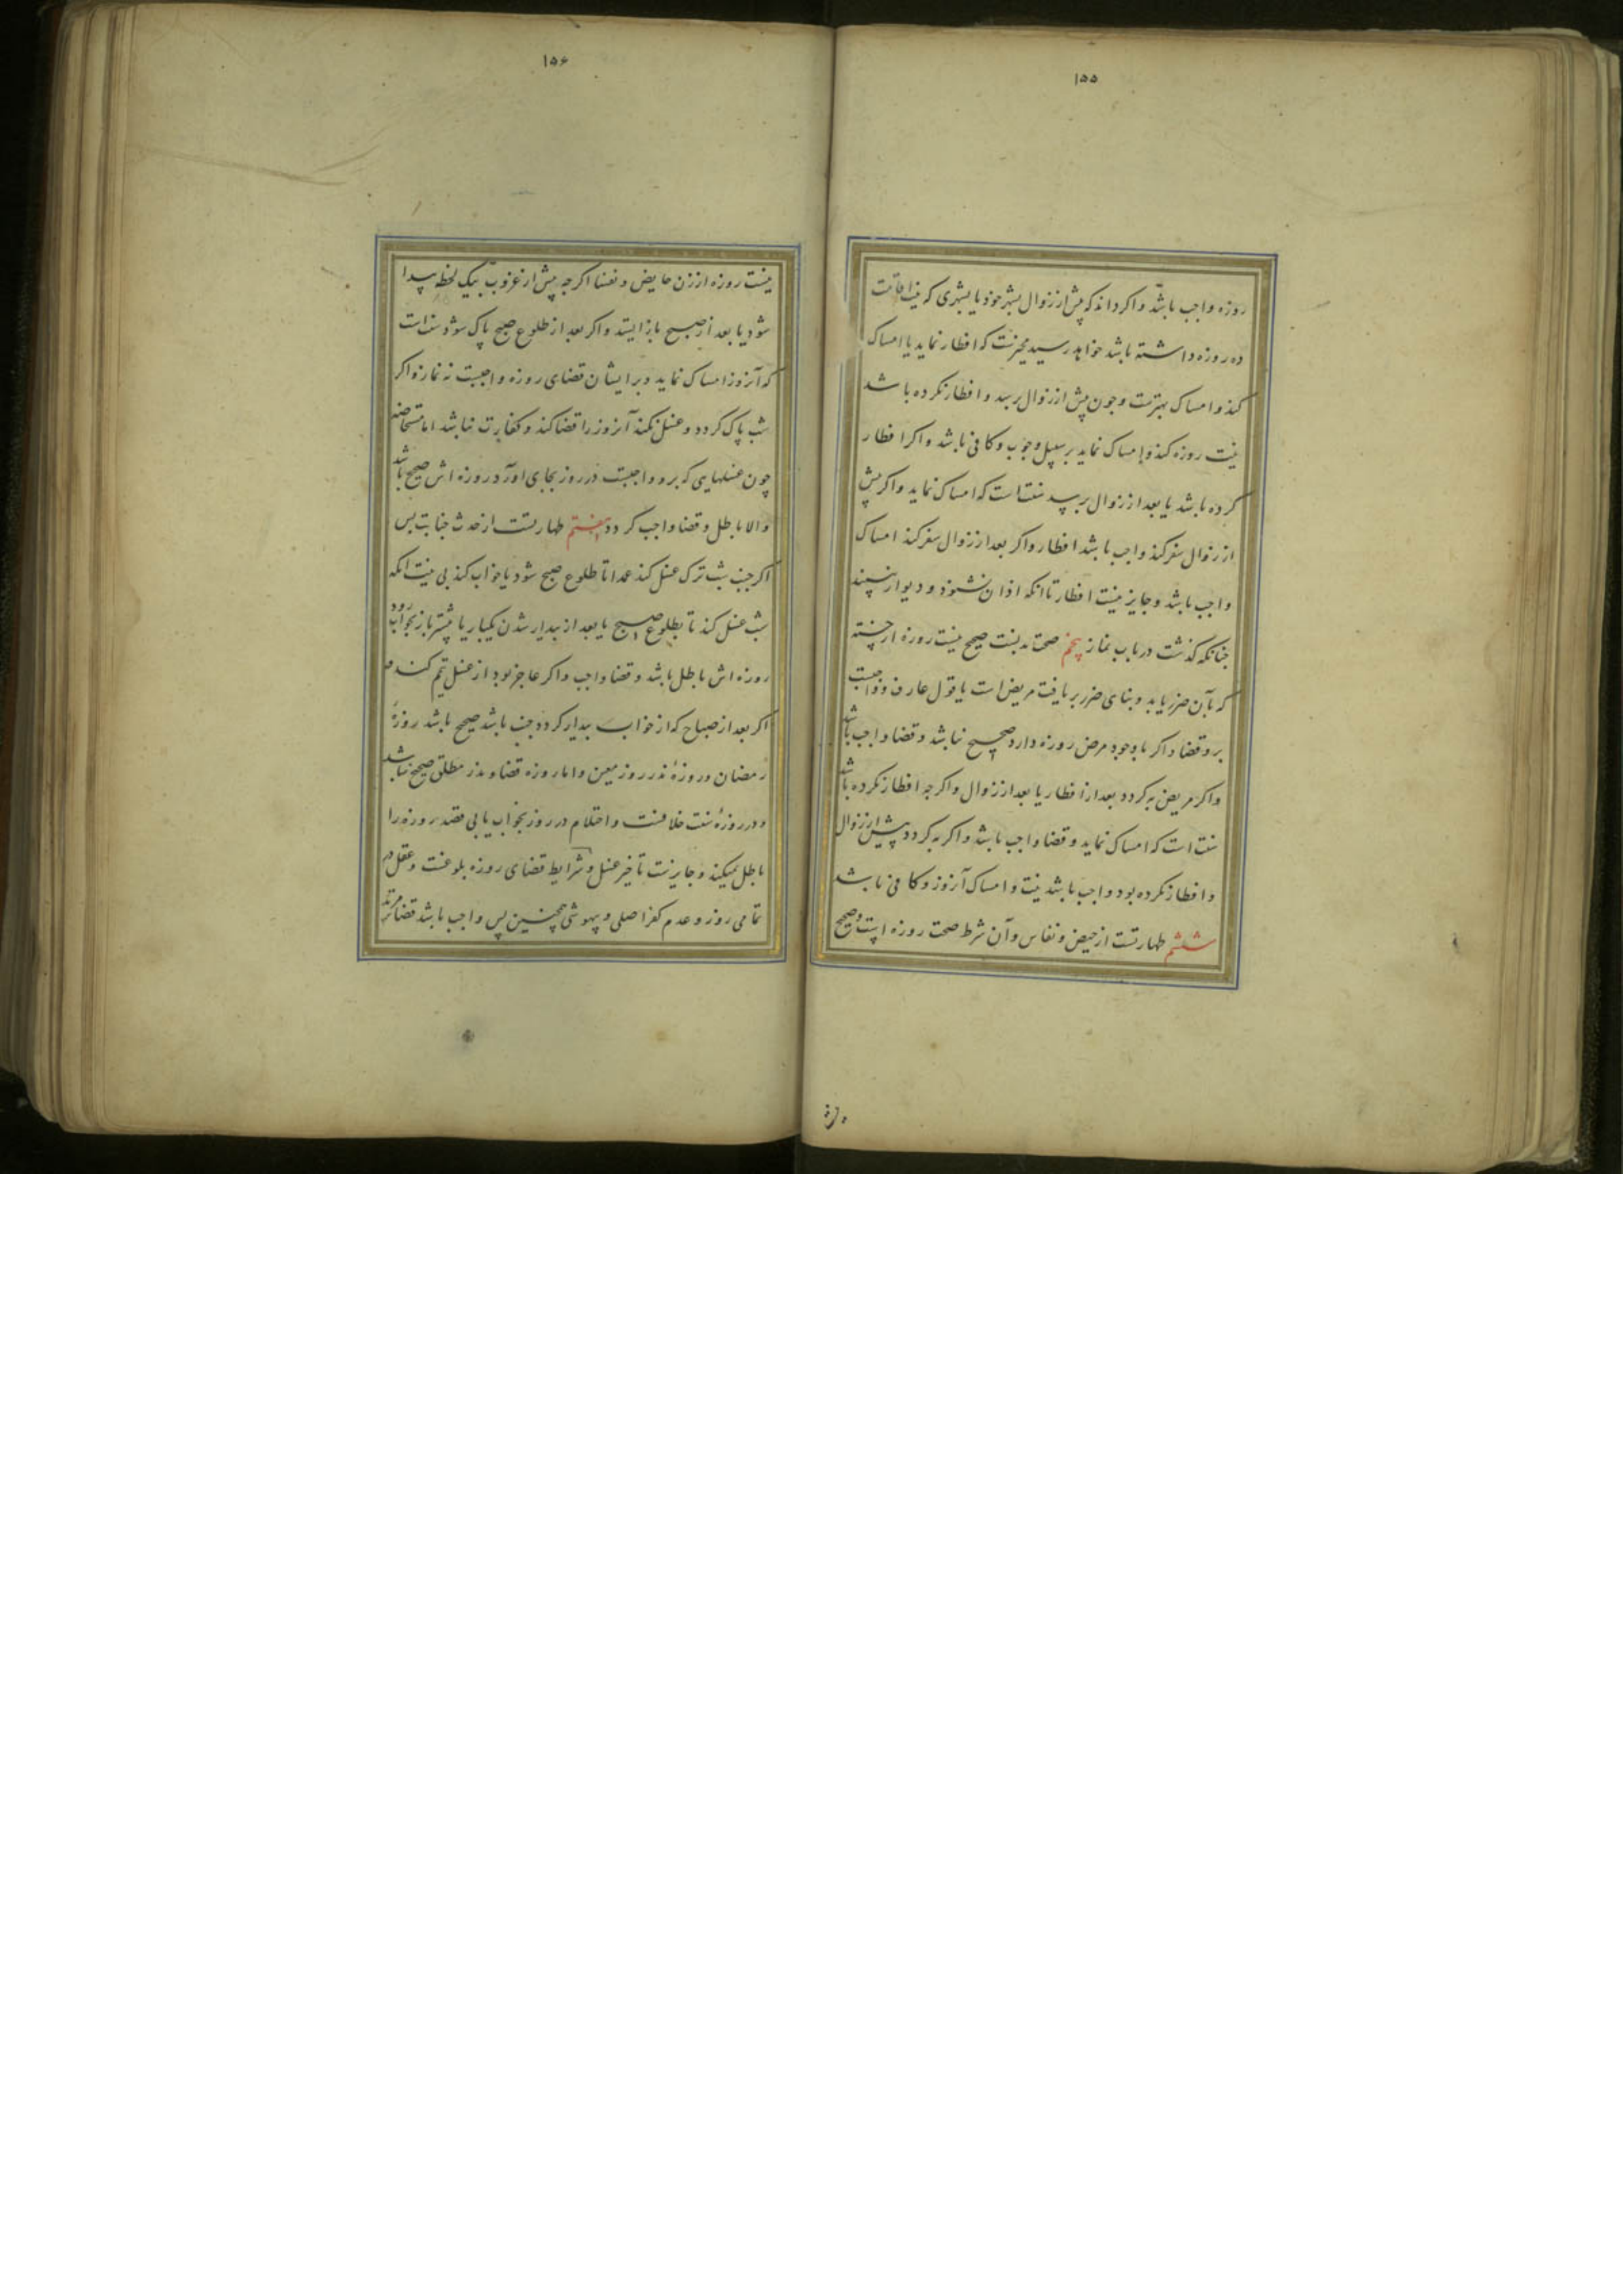 ۱۵۵
روزه واجب باشد و اکر داند که پیش از زوال بشهر خود یا بشهری که نیت اقامت
ده روزه داشته باشد خواهد رسید مخیرست که افطار نماید یا امساک
کند و امساک بهترست و جون پیش از زوال برسد و افطار نکرده باشد
نیت روزه کند و امساک نماید بر سبیل وجوب و کافی باشد و اکر افطار
کرده باشد یا بعد از زوال برسد سنت است که امساک نماید و اکر پیش
از زوال سفر کند واجب باشد افطار و اکر بعد از زوال سفر کند امساک
واجب باشد و جایز نیست افطار تا انکه اذان نشنود و دیوار نبیند
جنانکه کذشت در باب نماز پنجم صحت بدنست صحیح نیست روزه از خسته
که بآن ضرر یابد و بنای ضرر بر یافت مریض است یا قول عارف و واجبست
برو قضا و اکر با وجود مرض روزه دارد صحیح نباشد و قضا واجب باشد
و اکر مریض به کردد بعد از افطار یا بعد از زوال و اکرجه افطار نکرده باشد
سنت است که امساک نماید و قضا واجب باشد و اکر به کردد پیش از زوال
و افطار نکرده بود واجب باشد نیت و امساک آنروز و کافی باشد
ششم طهارتست از حیض و نفاس و آن شرط صحت روزه است و صحیح
۱۵۶
نیست روزه از زن حایض و نفسا اکرجه پیش از غروب بیک لحظه پیدا
شود یا بعد از صبح باز ایستد و اکر بعد از طلوع صبح پاک شود سنت است
که آنروز امساک نماید و بر ایشان قضای روزه واجبست نه نماز و اکر
شب پاک کردد و غسل نکند آنروز را قضا کند و کفارت نباشد اما مستحاضه
چون غسلهایی که برو واجبست در روز بجای آورد روزه اش صحیح باشد
والا باطل و قضا واجب کردد هفتم طهارتست از حدث جنابت پس
اکر جنب شب ترک غسل کند عمدا تا طلوع صبح شود یا خواب کند بی نیت انکه
شب غسل کند تا بطلوع صبح یا بعد از بیدار شدن یکبار یا بیشتر باز بخواب رود
روزه اش باطل باشد و قضا واجب و اکر عاجز بود از غسل تیمم کند و
اکر بعد از صباح که از خواب بیدار کردد جنب باشد صحیح باشد روزهٔ
رمضان و روزهٔ نذر روز معین و اما روزه قضا و نذر مطلق صحیح نباشد
و در روزهٔ سنت خلافست و احتلام در روز بخواب یا بی قصد روزه را
باطل نمیکند و جایزست تأخیر غسل و شرایط قضای روزه بلوغست و عقل در
تمامی روز و عدم کفر اصلی و بیهوشی همچنین پس واجب باشد قضا بر مرتد